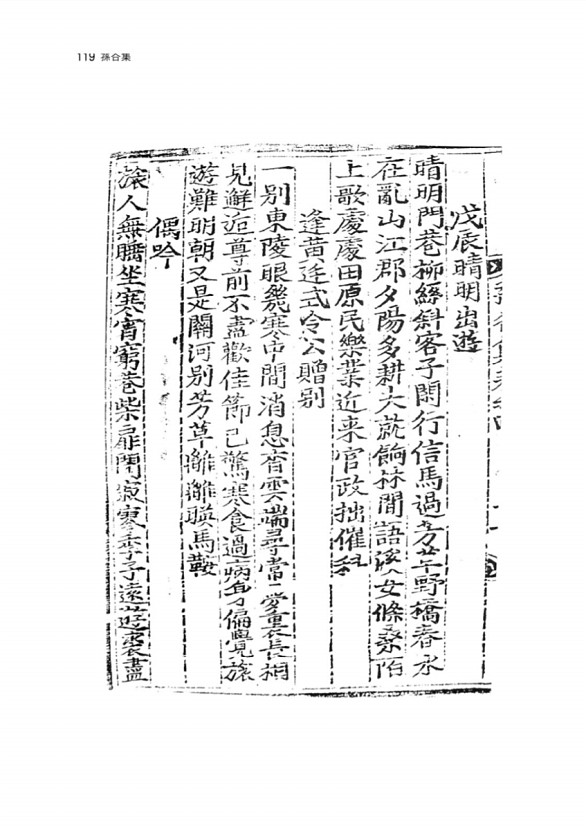 119 孫合集
戊辰晴明出遊
晴明門巷柳絲斜客子閒行信馬過芳草野橋春水
在亂山江郡夕陽多耕犬就餉林間語女條桑陌
上歌處處田原民樂業近来官政拙催科
逢黃廷式令公贈别
一别東陵眼幾寒中間消息杳雲端尋常愛重長相
見邂逅尊前不盡歡佳節已驚寒食過病身偏覺旅
遊難明朝又是關河别芳草離離暎馬鞍
偶吟
旅人無坐寒宵窮巷柴扉閉寂寥季子遠遊裘盡